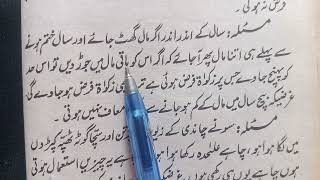 فرض نہ ہوگی۔
مسئلہ: سال کے اندر اندر اگر مال گھٹ جائے اور سال ختم ہونے
سے پہلے ہی اتنا مال پھر آ جائے کہ اگر اس کو باقی مال میں جوڑ دیں تو اس حد
کو پہنچ جاوے جس پر زکوٰۃ فرض ہوتی ہے تب بھی زکوٰۃ فرض ہو جاوے گی
غرضیکہ بیچ سال میں مال کے کم ہو جانے سے معاف نہیں ہوتی۔
مسئلہ: سونے چاندی کے زیور اور سچا گوٹہ ٹھپہ کپڑوں
میں لگا ہوا ہو، چاہے علیحدہ رکھا ہوا ہو چاہے یہ چیزیں استعمال ہوتی
ہوں چاہے یوں ہی رکھی ہوں